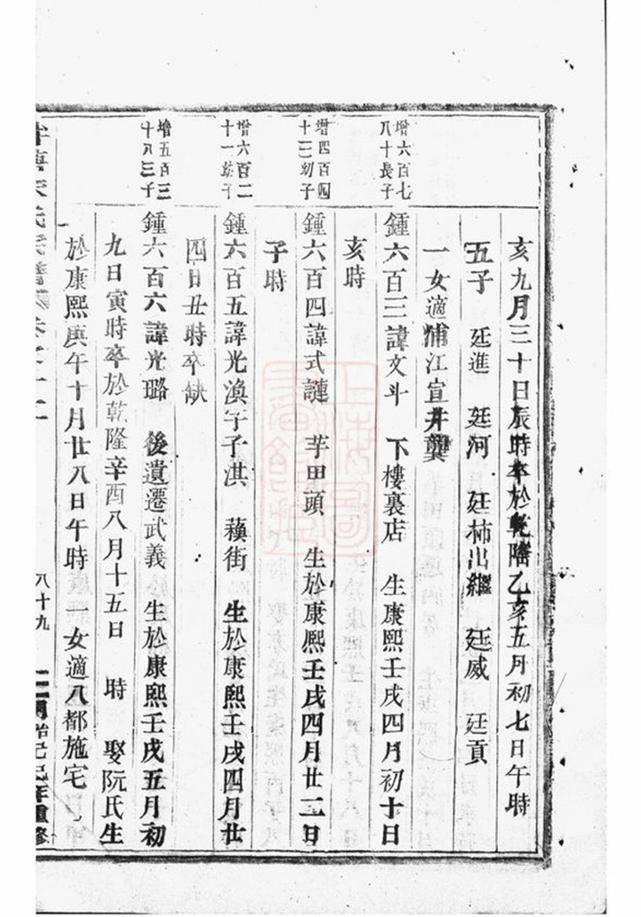 亥九月三十日辰時卒於乾隆乙亥五月初七日午時
五子 廷進 廷河 廷柿出繼 廷威 廷貢
一女適浦江宣井龔
增六百七
八十長子
鍾六百三諱文斗 下樓裏店 生康熙壬戌四月初十日
亥時
增四百四
十三初子
鍾六百四諱式謰 芋田頭 生於康熙壬戌四月廿二日
子時
增六百二
十一幼子
鍾六百五諱光渙字子淇 蘓街 生於康熙壬戌四月廿
四日丑時卒缺
增五百三
十八三子
鍾六百六諱光璐 後遺遷武義 生於康熙壬戌五月初
九日寅時卒於乾隆辛酉八月十五日 時 娶阮氏生
於康熙庚午十月廿八日午時 一女適八都施宅
八十九
年重修